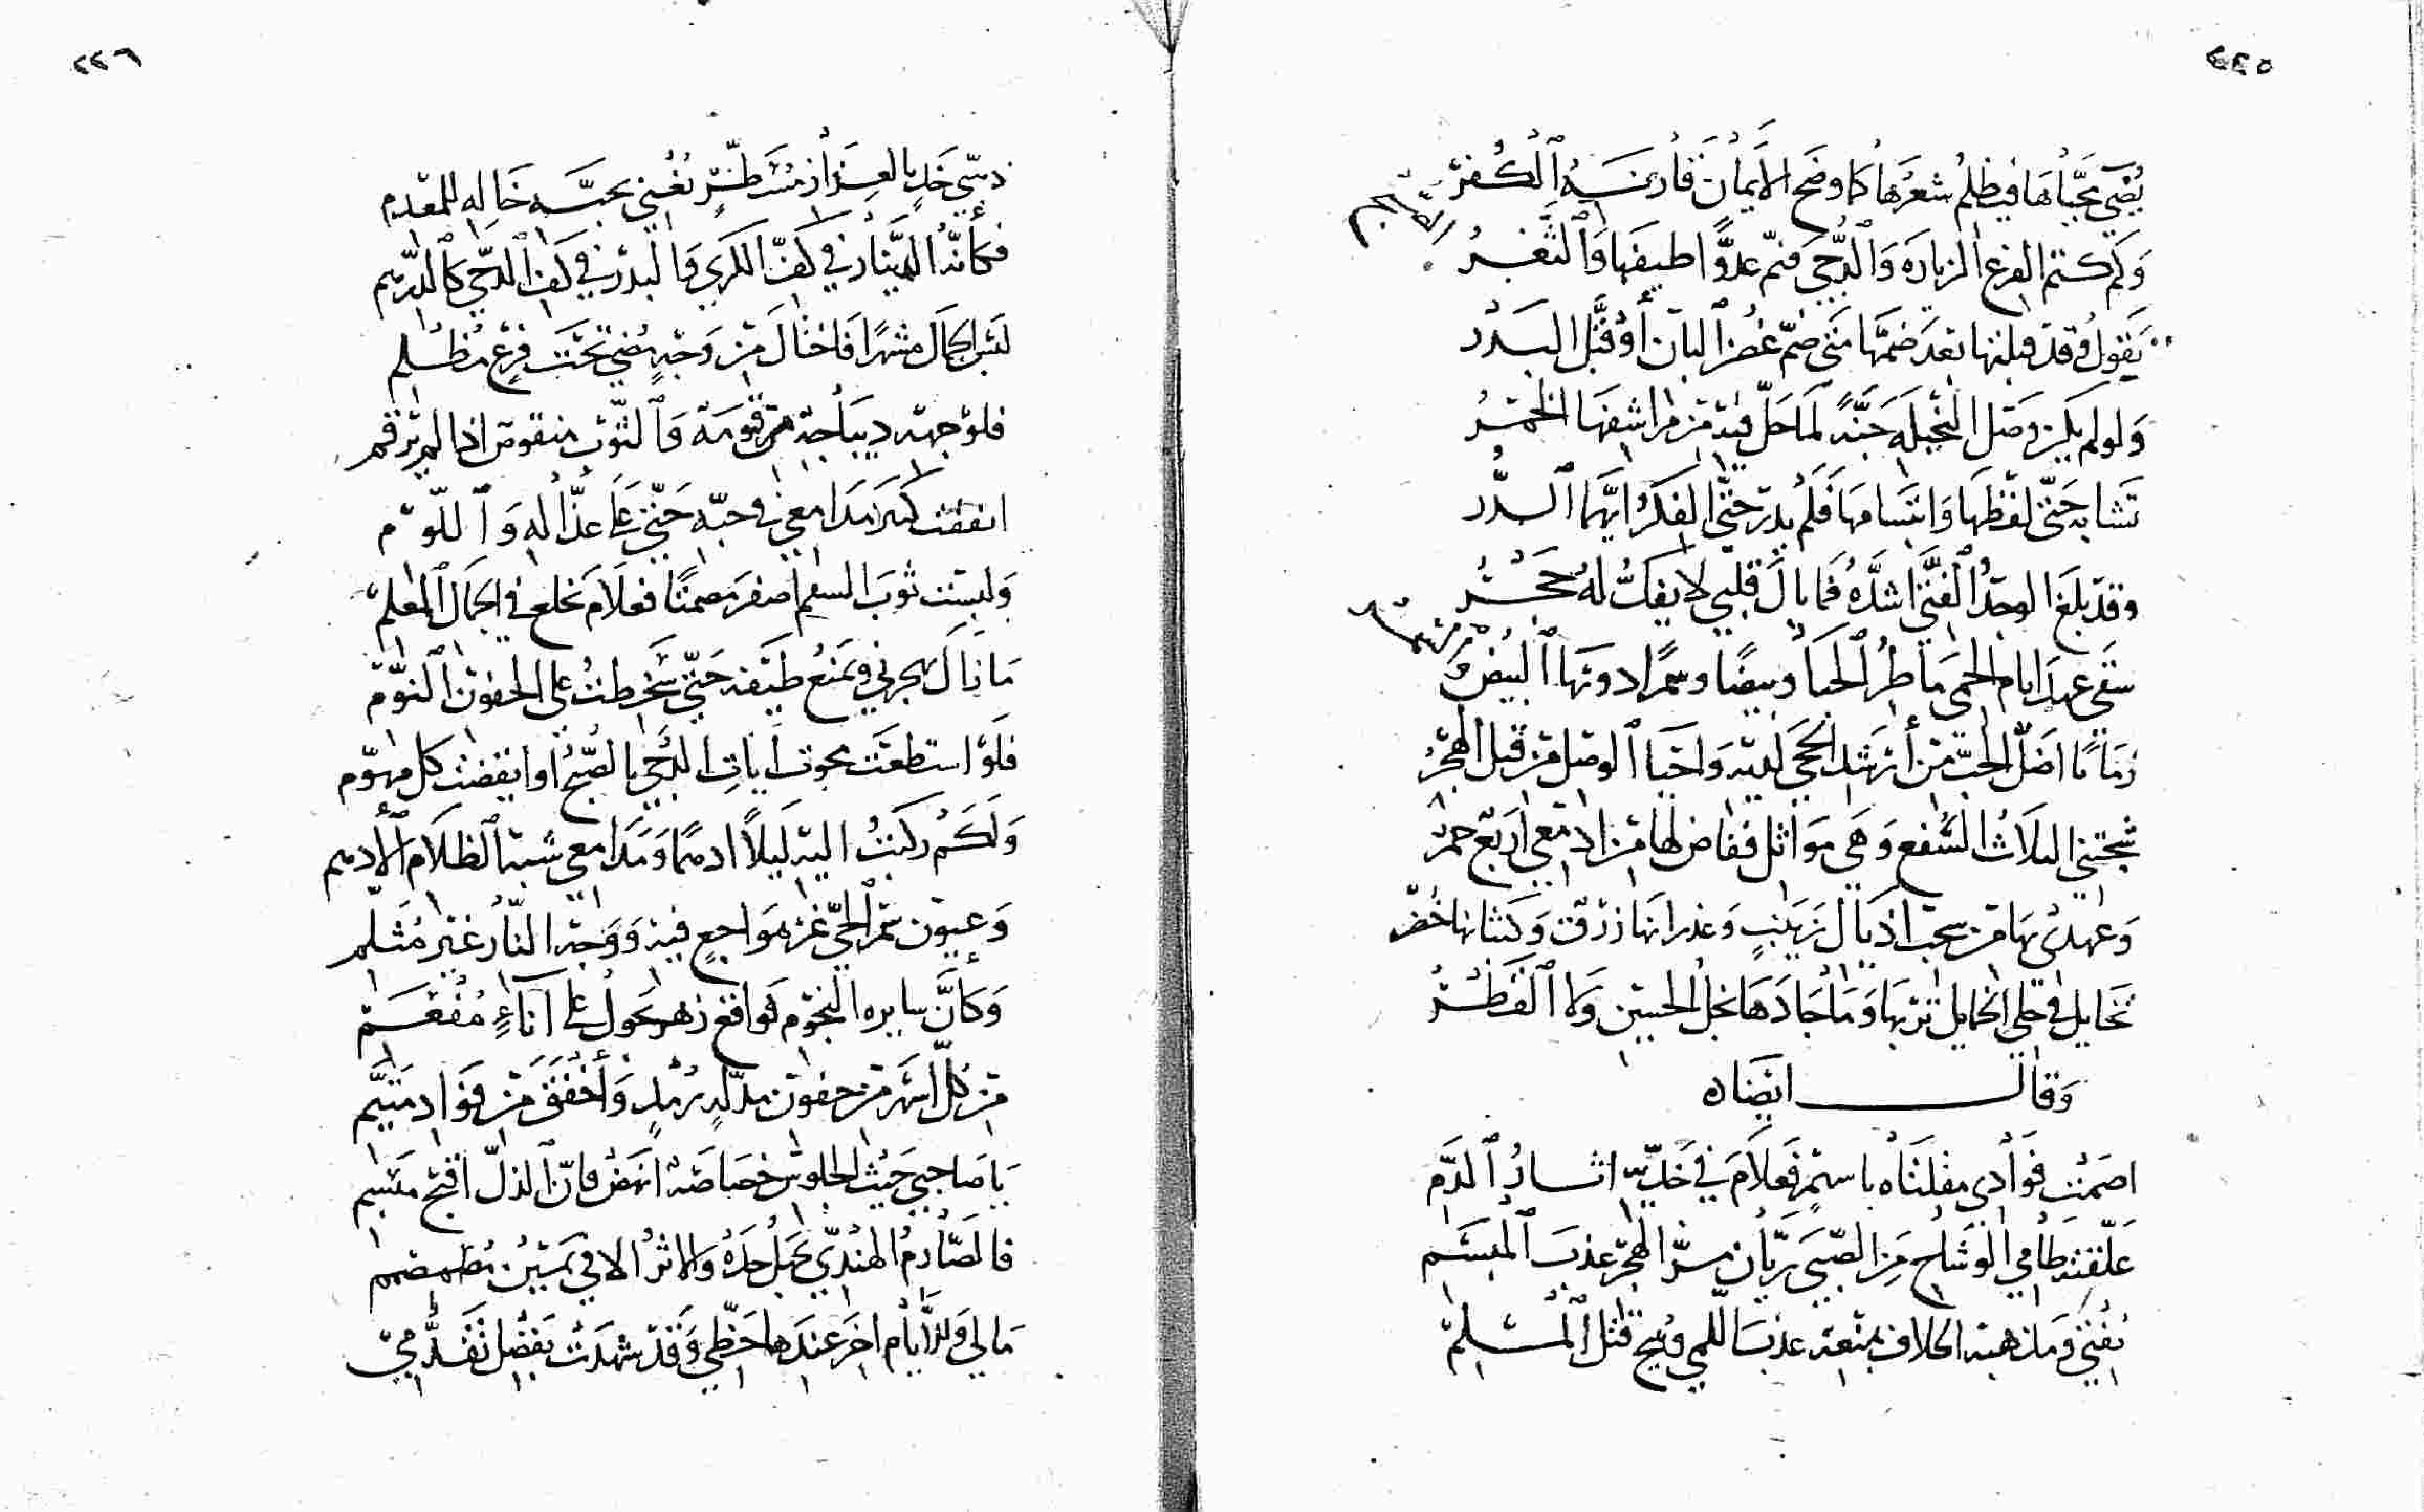 ٢٢٥
يُضيء محيّاها فيظلم شعرها كما وضح الايمان فادّنسه الكفر
وكم كتم الفرع الزيارة والدجى فنمّ علاوا طيفها والثغر
يقول وقد قبلتها بعد ضمّها متى ضمّ غصن البان أو قبّل البدر
ولو لم يكن وصل النخيلة جنّة لما حلّ فيه من مراشفها الخمر
تشابه حتى لفظها وابتسامها فلم يدر حتى الفكر ايّهما الدّر
وقد بلغ الوجد الفتى اشدّه فما بال قلبي لا يفك له حجر
سقى عهد ايام الحمى ماطر الحيا وبيضا وسمرا دونها البيض و
زمانا اضلّ الحبّ من أرشد الحجى لديه واحيا الوصل من قبل الهجر
شجتني الثلاث السّفع وهي مواثل ففاض لها من ادمعي اربع حمر
وعهدى بها من سحب اذيال زينب وغدرانها زرق وكثبانها خضر
تخايل في حلي الخمايل تربها وما جادها نجل الحسين ولا القطر
وقال ايضاه
اصمت فؤادي مقلتاه باسهم فعلام في خدّيه اثار الدّم
علّقته ظامي الوشاح من الصّبى ريّان من سرّ الهجر عذب المبسم
يفتي ومذهبه الخلاف بمنعه عذب اللّمى ويبيح قتل المسلم
٢٢٦
ذميّ خدّ بالعذار مشطّر نغني بحبّه خاله للمعدم
فكأنّه الدّينار في كفّ الكرى والبدر في كف الدّجى كالدّرهم
لبس الجمال مشهرا فاختال من وجه مضى تحت فرع مظلم
فلوجهه ديباجة مرقومة والثوب منقوص اذا لم يرقم
انفقت كنز مدامعي في حبّه حتى على عذّاله واللّوّم
ولبست ثوب السقم اصفر مصمتا فعلام تخلع في الجمال المعلم
ما زال يهجرني ويمنع طيفه حتى سخطت على الجفون النوّم
فلو استطعت محوت ايات الدّجى بالصّبح او ايقظت كل مهوّم
ولكم ركبت اليه ليلا ادهما ومدامعي شبه الظلام الادهم
وعيون سمر الحيّ غير هواجع فيه ووجه النّار غير مثلّم
وكأنّ سايره النجوم فواقع زهر تحول على آناء مفعم
من كلّ اسهر من جفون مدلّه رمد وأخفق من فؤاد متيّم
يا صاحبي حيث الجلوس خصاصة انهض فانّ الذلّ اقبح ميسم
فالصّارم الهندي يجهل حدّه والاثر الا في يمين مصمّم
مالي وللأيام اخر عندها حظّي وقد شهدت بفضل تقدّمي